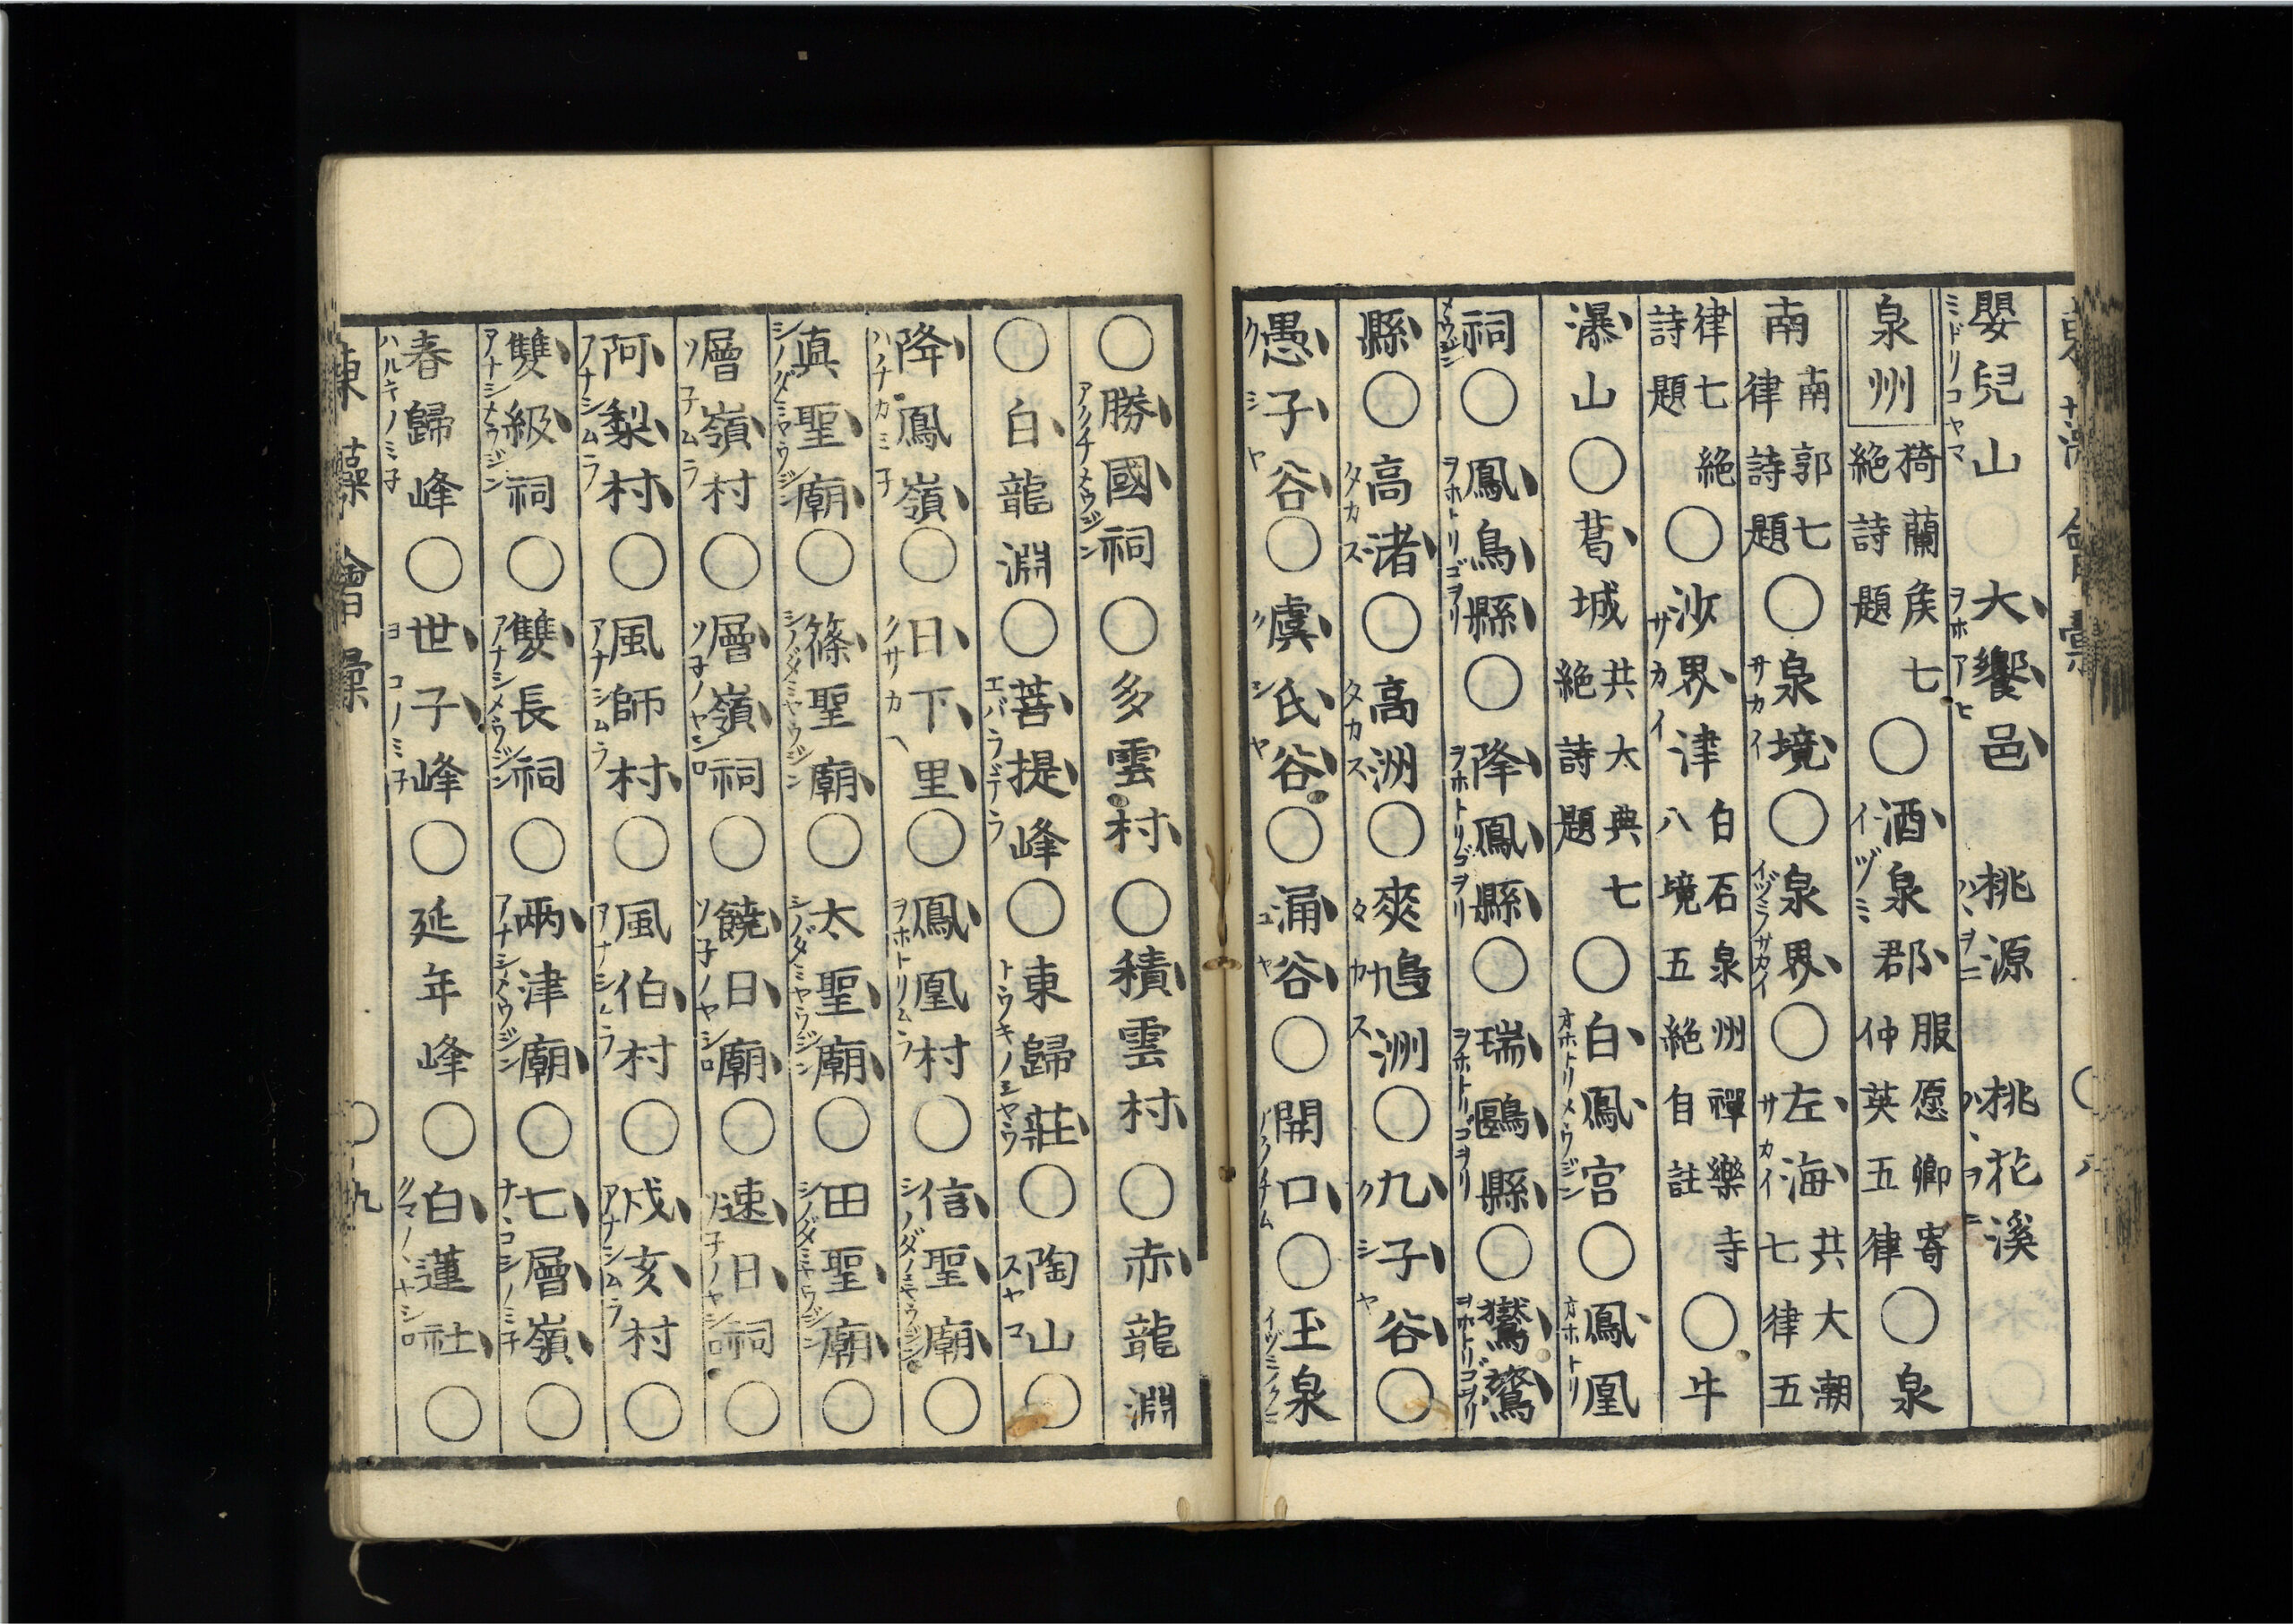 嬰兒山 ○ 大饗邑 桃源 桃花溪
ミドリコヤマ ヲホアヒ
泉州 猗蘭侯七絶詩題 ○ 酒泉郡 服愿卿寄仲英五律 ○ 泉
イヅミ
南 南郭七律詩題 ○ 泉境 ○ 泉界 ○ 左海 共大潮七律五
サカイ イヅミノサカイ サカイ
律七絶詩題 ○ 沙界津 白石泉州禪樂寺八境五絶自註 ○ 牛
サカイ
瀑山 ○ 葛城 共太典七絶詩題 ○ 白鳳宮 ○ 鳳凰
オホトリメウジン オホトリ
祠 ○ 鳳鳥縣 ○ 降鳳縣 ○ 瑞鷗縣 ○ 鸑鷟
メウジン ヲホトリゴヲリ ヲホトリゴヲリ ヲホトリゴヲリ ヲホトリゴヲリ
縣 ○ 高渚 ○ 高洲 ○ 爽鳩洲 ○ 九子谷 ○
タカス タカス タカス クシヤ
愚子谷 ○ 虞氏谷 ○ 涌谷 ○ 開口 ○ 玉泉
クシヤ クシヤ ユヤ イヅミ
○ 勝國祠 ○ 多雲村 ○ 積雲村 ○ 赤龍淵
アクチメウジン
○ 白龍淵 ○ 菩提峰 ○ 東歸莊 ○ 陶山 ○
エバラデラ スヤコ
降鳳嶺 ○ 日下里 ○ 鳳凰村 ○ 信聖廟 ○
ハチカミ子 クサカヘ ヲホトリムラ シノダミヤウジン
真聖廟 ○ 篠聖廟 ○ 太聖廟 ○ 田聖廟 ○
シノダミヤウジン シノダミヤウジン シノダミヤウジン シノダミヤウジン
層嶺村 ○ 層嶺祠 ○ 饒日廟 ○ 速日祠 ○
ソ子ムラ ソ子ノヤシロ ソ子ノヤシロ ソ子ノヤシロ
阿梨村 ○ 風師村 ○ 風伯村 ○ 戌亥村 ○
アナシムラ アナシムラ アナシムラ アナシムラ
雙級祠 ○ 雙長祠 ○ 兩津廟 ○ 七層嶺 ○
アナシメウジン アナシメウジン アナシメウジン ナヽコシノミ子
春歸峰 ○ 世子峰 ○ 延年峰 ○ 白蓮社 ○
ハルキノミ子 ヨコノミ子 クマノヽヤシロ
藻會彙 ○ 九